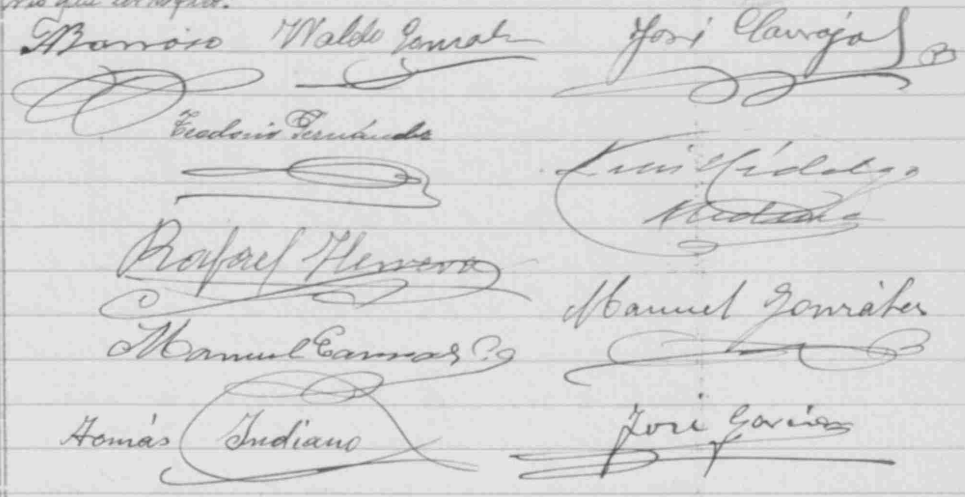 que certifico.
Barroso Waldo Gonzalez José Carvajal
Teodoro Fernández
Luis Hidalgo
Rafael Herrera
Manuel González
Manuel
Tomás Indiano José García